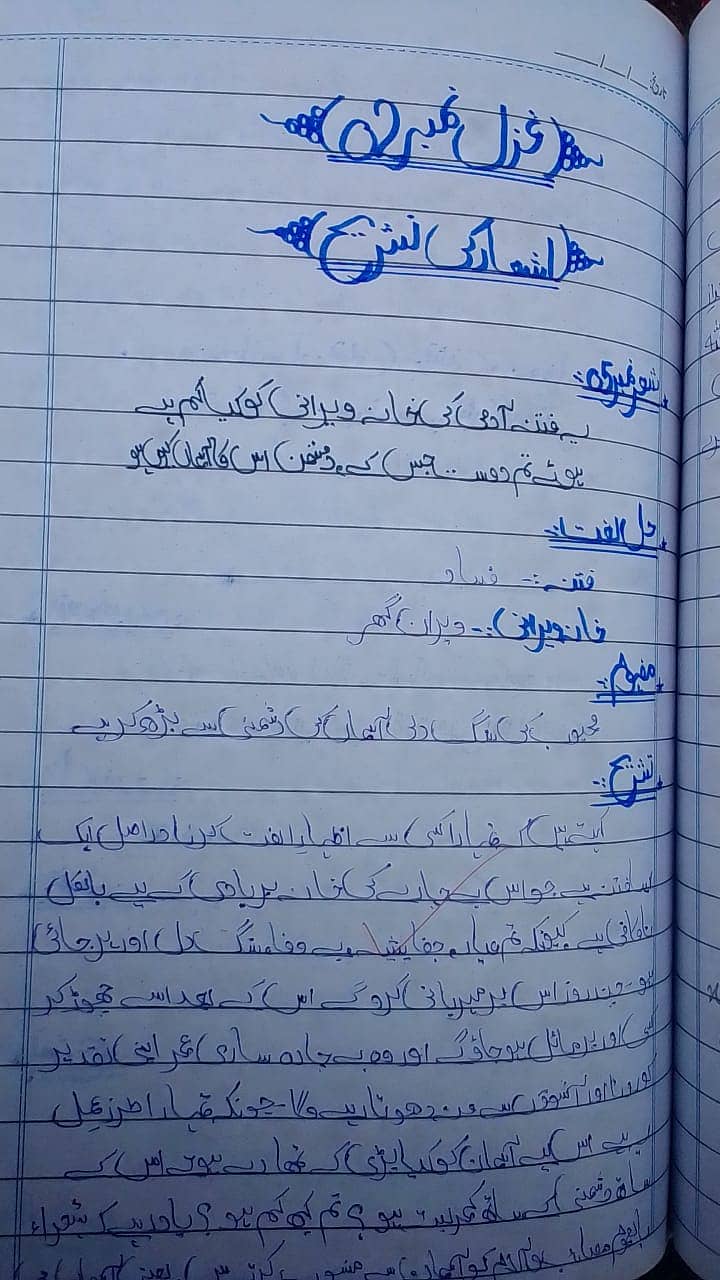 تاریخ
غزل نمبر 02
اشعار کی تشریح
شعر نمبر 05:
یہ فتنہ آدمی کی خانہ ویرانی کو کیا کم ہے
ہوئے تم دوست جس کے دشمن اس کا آسماں کیوں ہو
حل الفت:-
فتنہ:- فساد
خانہ ویرانی:- ویران گھر
مفہوم:-
محبوب کی سنگ دلی آسمان کی دشمنی سے بڑھ کر ہے
تشریح:-
کہتے ہیں کہ تمہارا کسی سے اظہارِ الفت کرنا دراصل ایک
ایسا فتنہ ہے جو اس بے چارے کی خانہ بربادی کے لیے بالکل
کافی ہے کیونکہ تم جفا بے وفا سنگ دل اور ہرجائی
ہو۔ چند روز اس پر مہربانی کرو گے اس کے بعد اسے چھوڑ کر
کسی اور پر مائل ہو جاؤ گے اور وہ بے چارہ ساری عمر اپنی تقدیر
کو روتا اور آنسوؤں سے منہ دھوتا رہے گا۔ چونکہ تمہارا طرزِ عمل
یہ ہے اس لیے آسمان کو کیا پڑی کہ تمھارے ہوتے اس کے
ساتھ دشمنی ہو؟ تم کچھ کم ہو؟ یاد رہے کہ شعراء